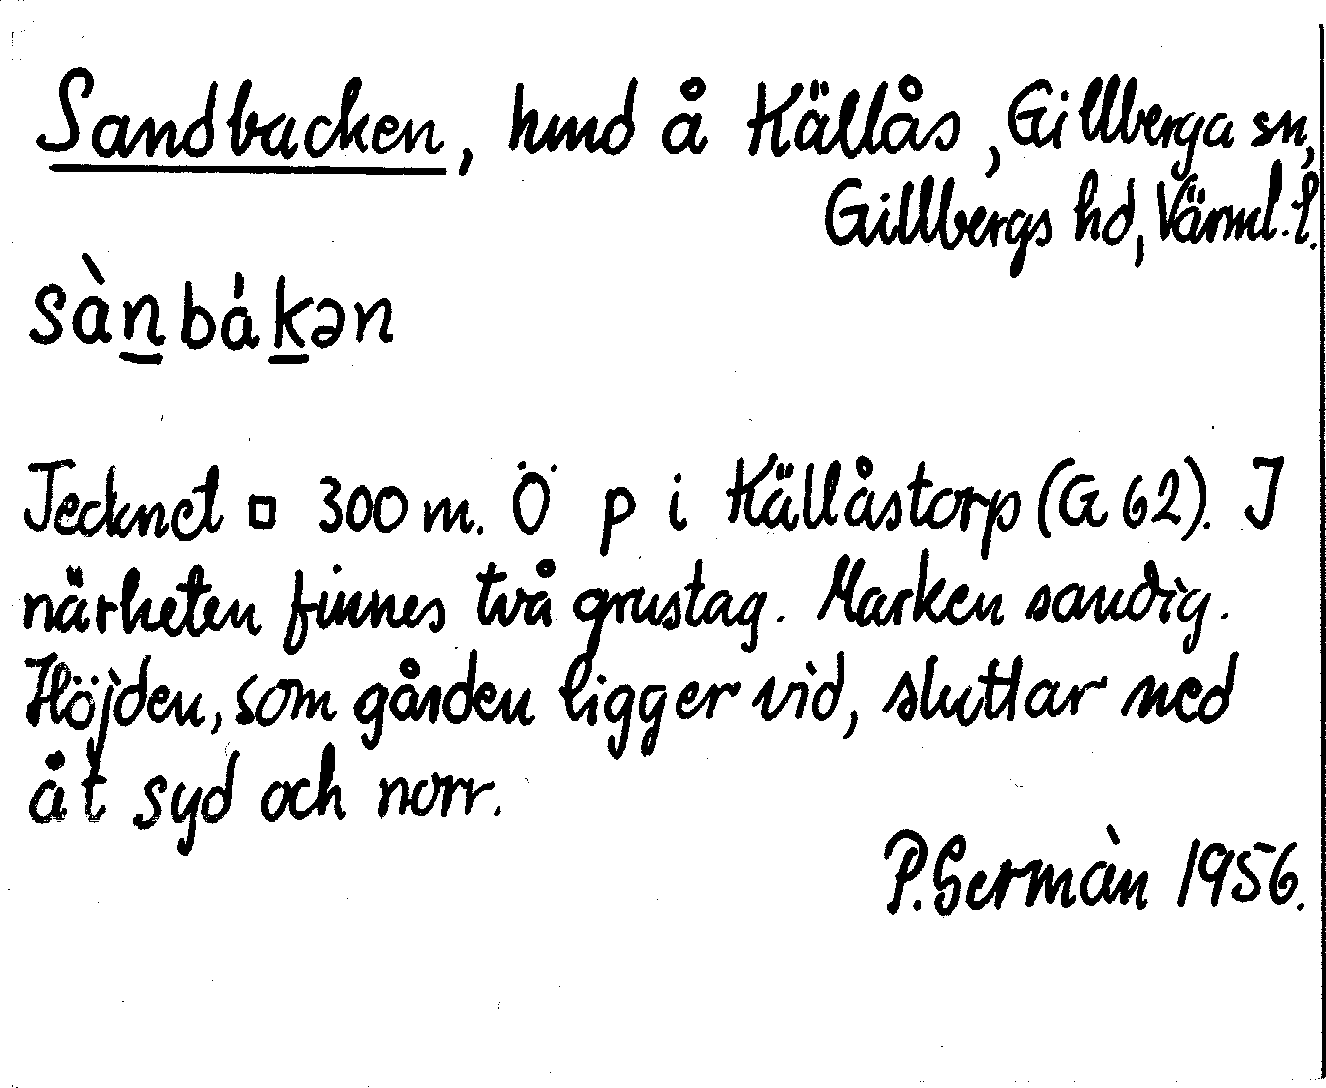 Sandbacken, hmd å Källås, Gillberga sn,
Gillbergs hd, Värml. l.
sàn̲bák̲ən
Tecknet □ 300 m. Ö p i Källåstorp (G 62). I
närheten finnes två grustag. Marken sandig.
Höjden, som gården ligger vid, sluttar ned
åt syd och norr.
P. Germàn 1956.